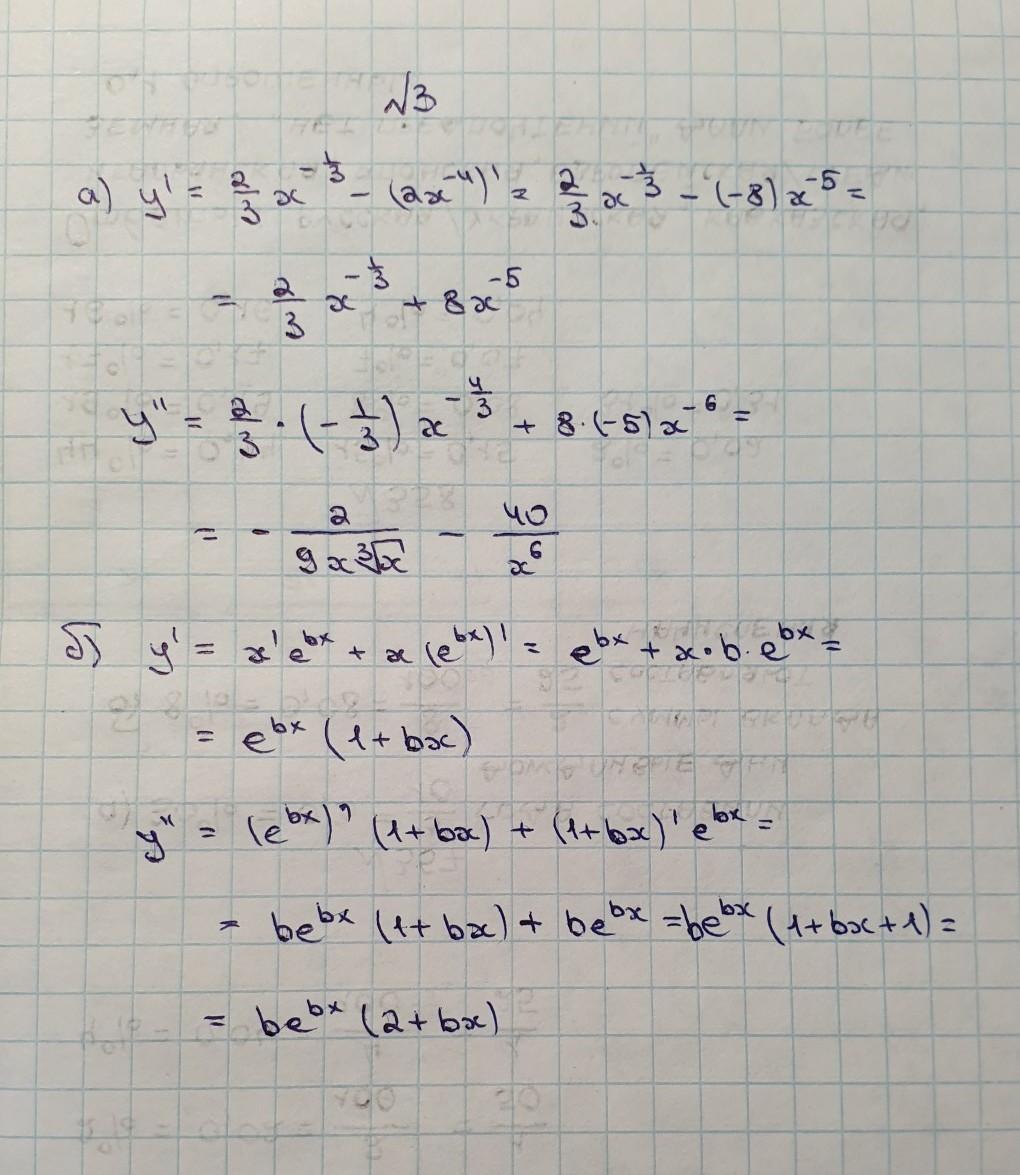 √3
а) y' = 2/3 x^(-1/3) - (2x^(-4))' = 2/3 x^(-1/3) - (-8)x^(-5) =
= 2/3 x^(-1/3) + 8x^(-5)
y'' = 2/3 · (-1/3) x^(-4/3) + 8·(-5)x^(-6) =
= - 2/(9x∛x) - 40/x^6
б) y' = x'e^(bx) + x(e^(bx))' = e^(bx) + x·b·e^(bx) =
= e^(bx) (1+bx)
y'' = (e^(bx))' (1+bx) + (1+bx)' e^(bx) =
= be^(bx) (1+bx) + be^(bx) = be^(bx) (1+bx+1) =
= be^(bx) (2+bx)